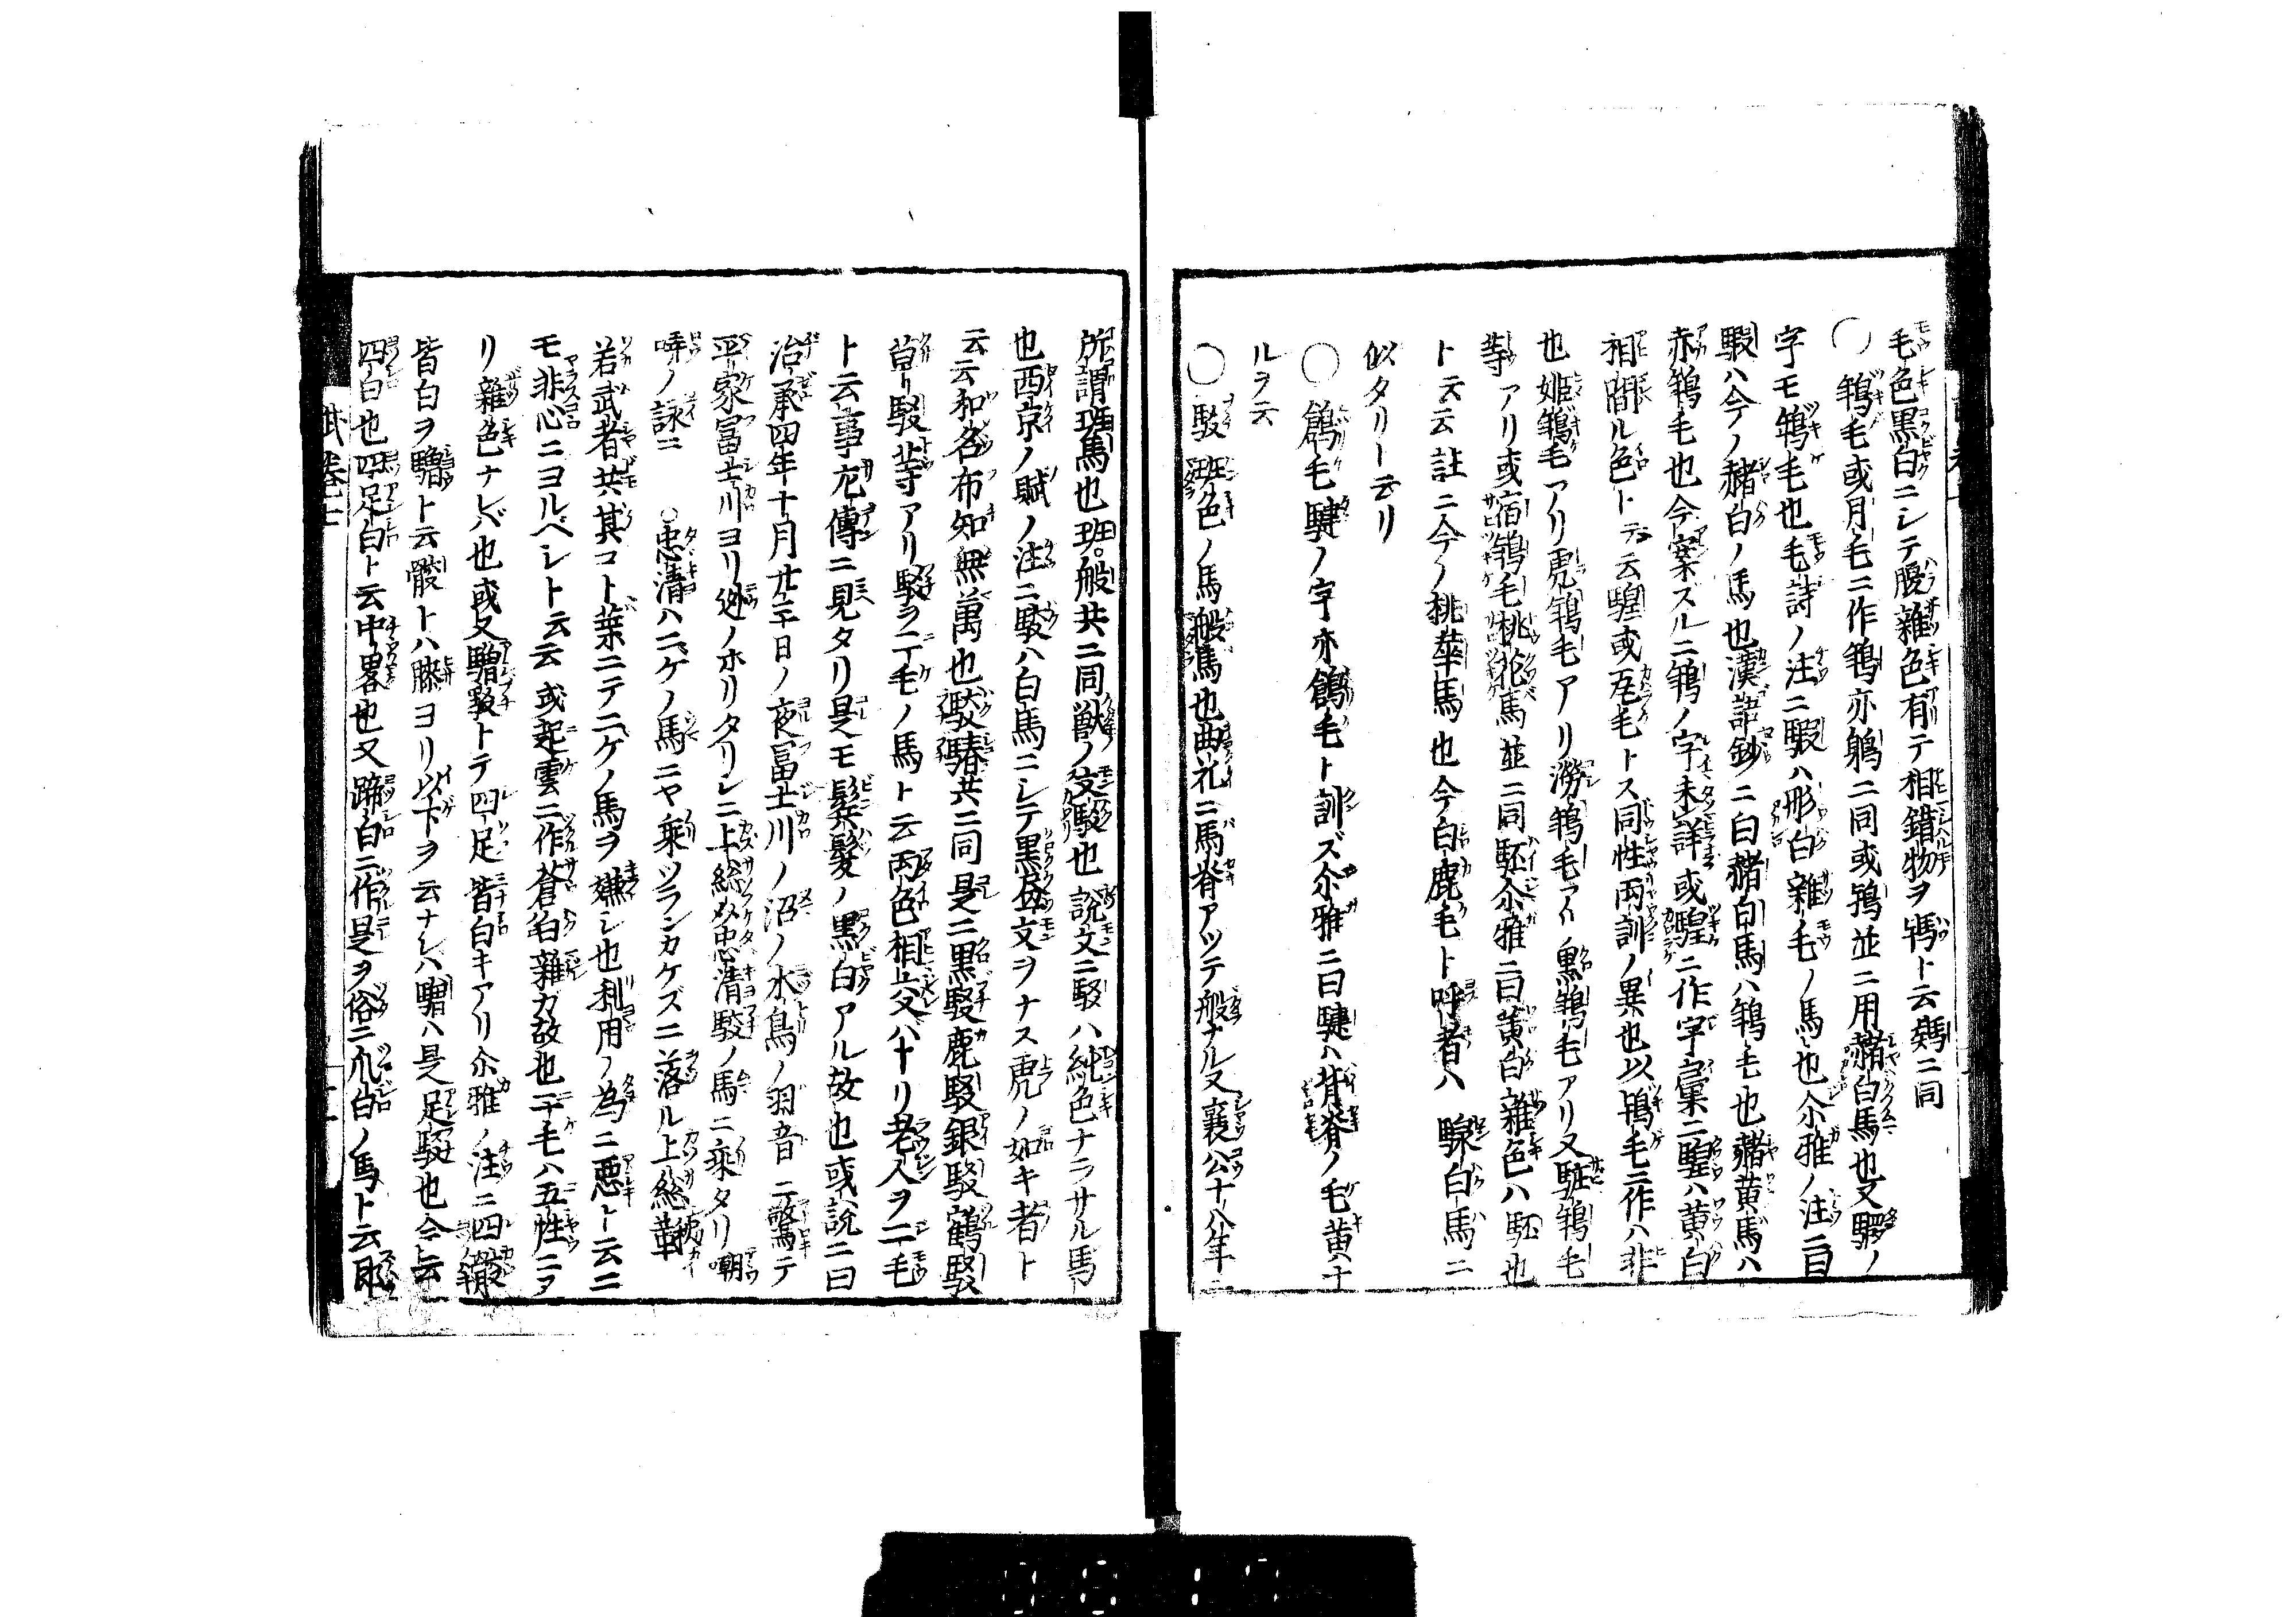 毛色黒白ニシテ腹雜色有テ相錯物ヲ ト云 ニ同
○鴾毛或月毛ニ作鴾亦鵃ニ同或鴇並ニ用赭白馬也又騢ノ
字モ鴾毛也毛詩ノ注ニ騢ハ彤白雜毛ノ馬也尒雅ノ注ニ曰
騢ハ今ノ赭白ノ馬也漢語鈔ニ白赭白馬ハ鴾毛也赭黄馬ハ
赤鴾毛也今案ズルニ鴾ノ字未詳或騜ニ作字彙ニ騜ハ黄白
相間ル色ト云云騜或 毛トス同性両訓ノ異也以鴇毛ニ作ハ非
也姫鴾毛アリ虎鴾毛アリ澇鴾毛アリ黒鴾毛アリ又 鴾毛
等アリ或宿鴾毛桃花馬並ニ同駓尒雅ニ曰黄白雜色ハ駓也
ト云云註ニ今ノ桃華馬也今白鹿毛ト呼者ハ騵白馬ニ
似タリト云リ
○鶬毛騝ノ字亦鶬毛ト訓ズ尒雅ニ曰騝ハ背脊ノ毛黄ナ
ルヲ云
○駁班色ノ馬般馬也曲礼ニ馬脊アツテ般ナル又襄公十八年ニ
所謂班馬也班般共ニ同獣ノ文駁也説文ニ駁ハ純色ナラサル馬
也西京ノ賦ノ注ニ駁ハ白馬ニシテ黒 文ヲナス虎ノ如キ者ト
云云和名布知無萬也駁 共ニ同是ニ黒駁鹿駁銀駁鶴駁
草駁等アリ駁ヲ二毛ノ馬ト云両色相交ハナリ老人ヲ二毛
ト云事左傳ニ見タリ是モ鬢髮ノ黒白アル故也或説ニ曰
治承四年十月廿三日ノ夜冨士川ノ沼ノ水鳥ノ羽音ニ驚テ
平家冨士川ヨリ迯ノホリタリシニ上総 忠清駁ノ馬ニ乗タリ嘲
哢ノ詠ニ ○忠清ハニゲノ馬ニヤ乗ツランカケズニ落ル上総鞦
若武者共其コト葉ニテ二ゲノ馬ヲ嫌シ也利用ノ為ニ悪ト云ニ
モ非心ニヨルベシト云云或起雲ニ作蒼白雜ガ故也二毛ハ五性ニヲ
リ雜色ナレバ也或又驓駁トテ四足皆白キアリ尒雅ノ注ニ四骹
皆白ヲ驓ト云骹トハ膝ヨリ以下ヲ云ナレハ驓ハ是足駁也今云
四白也四足白ト云中畧也又蹄白ニ作是ヲ俗ニ爪白ノ馬ト云即
武 卷七